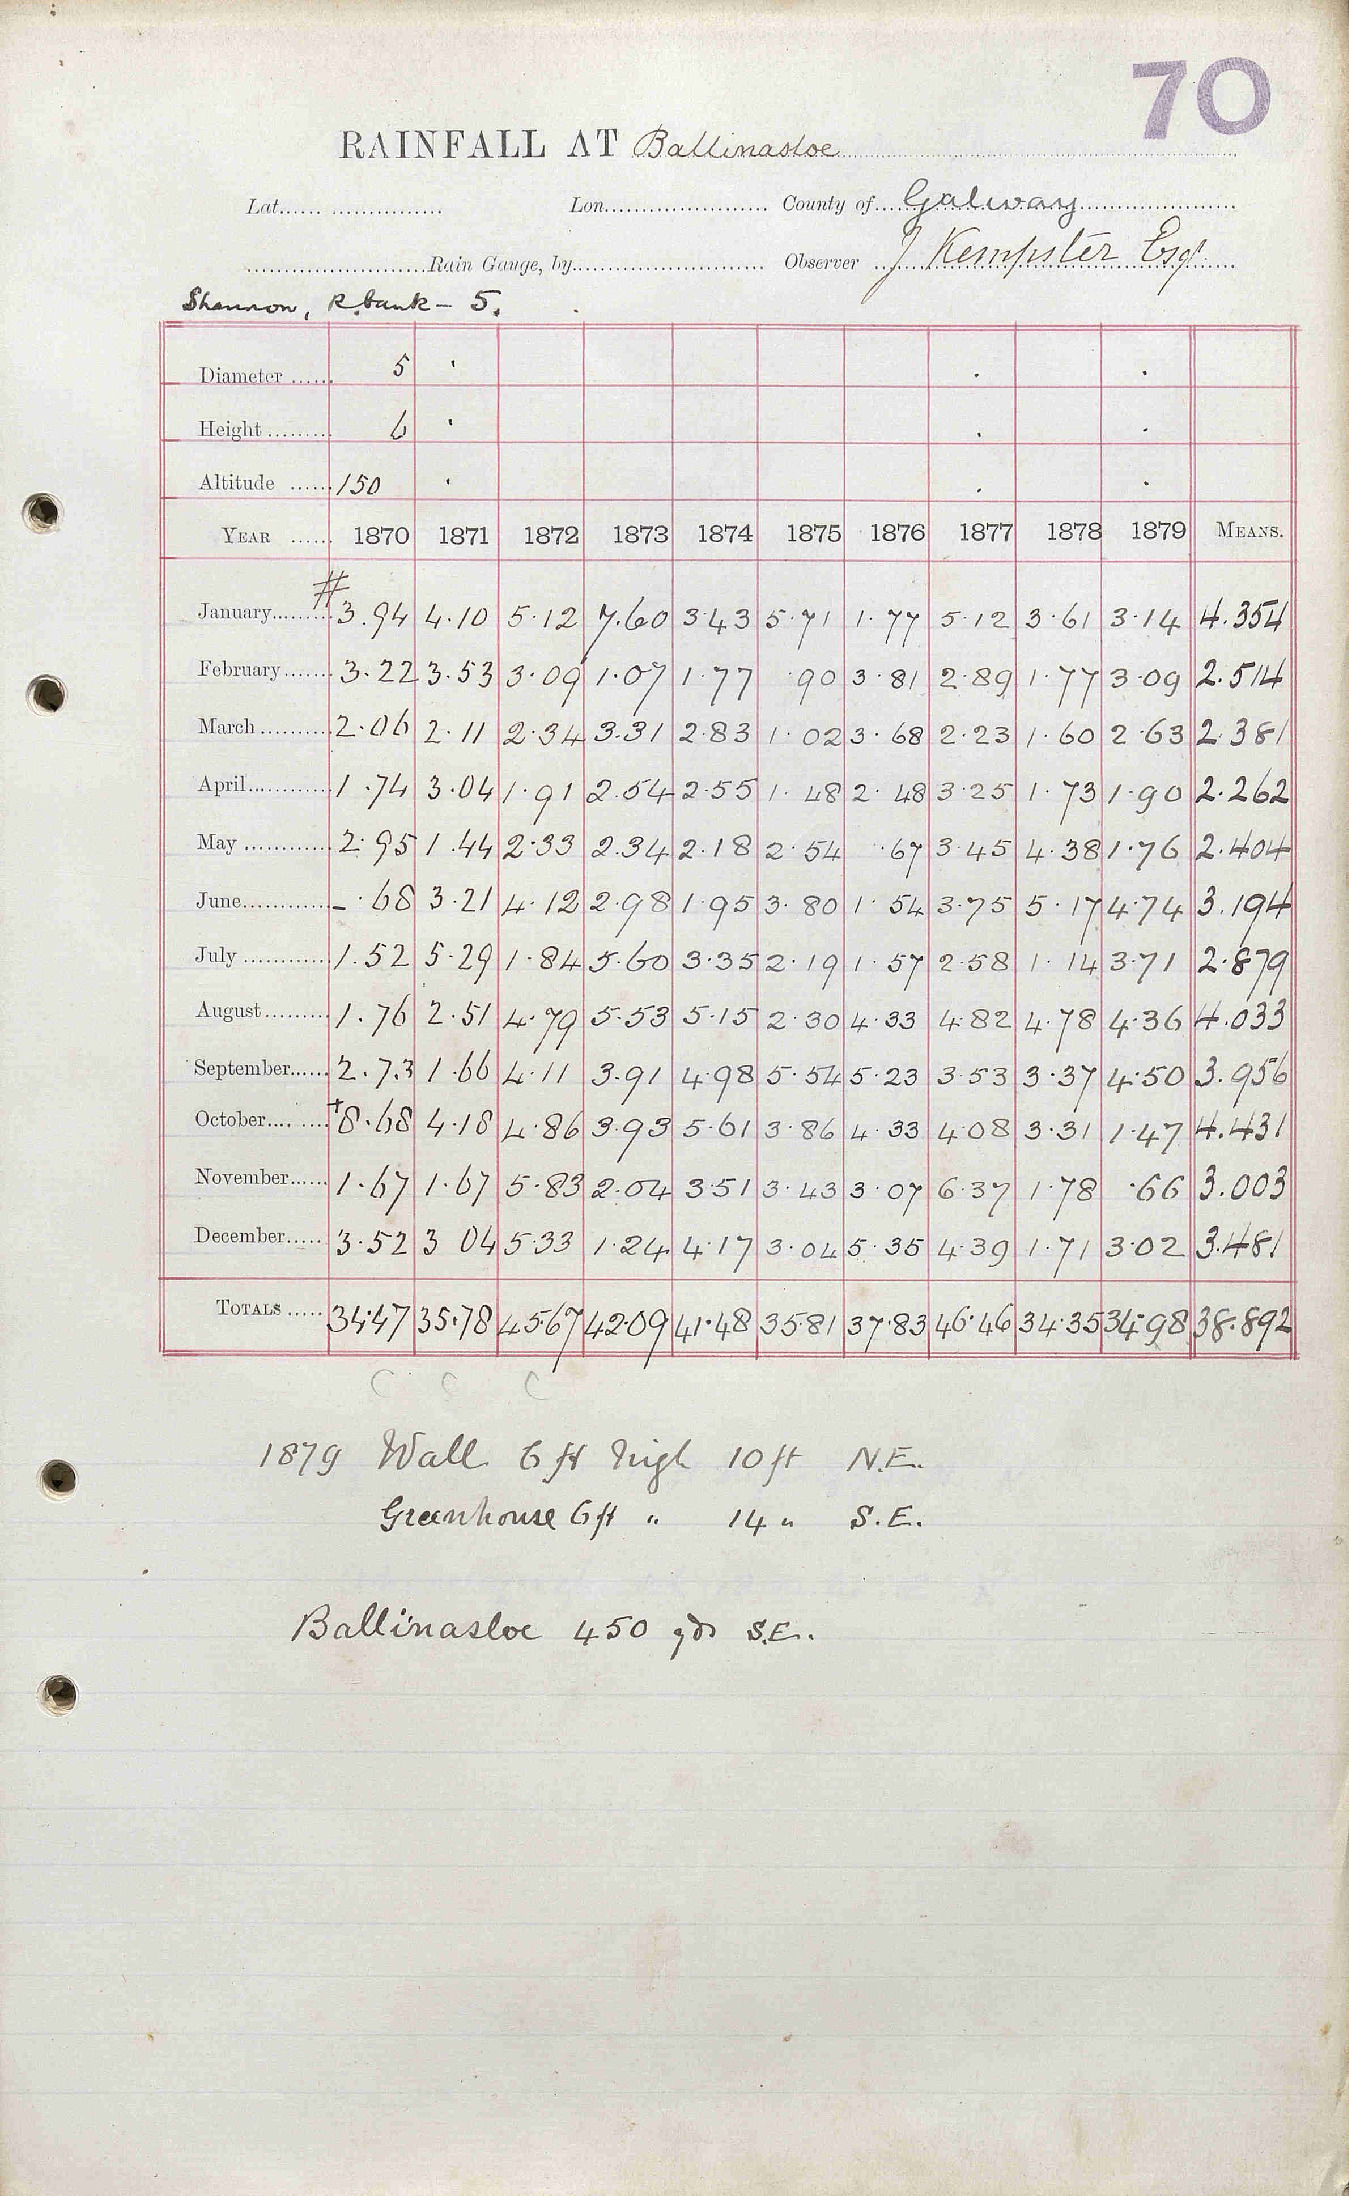 70
RAINFALL AT Ballinasloe
Lat. Lon. County of Galway
Rain Gauge, by Observer J Kempster Esqr
Shannon, R. bank - 5.
Diameter 5
Height 6
Altitude 150
YEAR 1870 1871 1872 1873 1874 1875 1876 1877 1878 1879 MEANS.
#
January 3.94 4.10 5.12 7.60 3.43 5.71 1.77 5.12 3.61 3.14 4.354
February 3.22 3.53 3.09 1.07 1.77 .90 3.81 2.89 1.77 3.09 2.514
March 2.06 2.11 2.34 3.31 2.83 1.02 3.68 2.23 1.60 2.63 2.381
April 1.74 3.04 1.91 2.54 2.55 1.48 2.48 3.25 1.73 1.90 2.262
May 2.95 1.44 2.33 2.34 2.18 2.54 .67 3.45 4.38 1.76 2.404
June - .68 3.21 4.12 2.98 1.95 3.80 1.54 3.75 5.17 4.74 3.194
July 1.52 5.29 1.84 5.60 3.35 2.19 1.57 2.58 1.14 3.71 2.879
August 1.76 2.51 4.79 5.53 5.15 2.30 4.33 4.82 4.78 4.36 4.033
September 2.73 1.66 4.11 3.91 4.98 5.54 5.23 3.53 3.37 4.50 3.956
October +8.68 4.18 4.86 3.93 5.61 3.86 4.33 4.08 3.31 1.47 4.431
November 1.67 1.67 5.83 2.04 3.51 3.43 3.07 6.37 1.78 .66 3.003
December 3.52 3 04 5.33 1.24 4.17 3.04 5.35 4.39 1.71 3.02 3.481
TOTALS 34.47 35.78 45.67 42.09 41.48 35.81 37.83 46.46 34.35 34.98 38.892
C C C
1879 Wall 6 ft high 10 ft N.E.
Greenhouse 6 ft " 14 " S.E.
Ballinasloe 450 yds S.E.